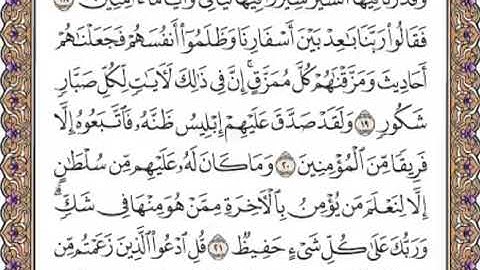 وَقَدَّرْنَا فِيهَا ٱلسَّيْرَ سِيرُوا۟ فِيهَا لَيَالِىَ وَأَيَّامًا ءَامِنِينَ ١٨
فَقَالُوا۟ رَبَّنَا بَٰعِدْ بَيْنَ أَسْفَارِنَا وَظَلَمُوٓا۟ أَنفُسَهُمْ فَجَعَلْنَٰهُمْ
أَحَادِيثَ وَمَزَّقْنَٰهُمْ كُلَّ مُمَزَّقٍ ۚ إِنَّ فِى ذَٰلِكَ لَءَايَٰتٍ لِّكُلِّ صَبَّارٍ
شَكُورٍ ١٩ وَلَقَدْ صَدَّقَ عَلَيْهِمْ إِبْلِيسُ ظَنَّهُۥ فَٱتَّبَعُوهُ إِلَّا
فَرِيقًا مِّنَ ٱلْمُؤْمِنِينَ ٢٠ وَمَا كَانَ لَهُۥ عَلَيْهِم مِّن سُلْطَٰنٍ
إِلَّا لِنَعْلَمَ مَن يُؤْمِنُ بِٱلْءَاخِرَةِ مِمَّنْ هُوَ مِنْهَا فِى شَكٍّ ۗ
وَرَبُّكَ عَلَىٰ كُلِّ شَىْءٍ حَفِيظٌ ٢١ قُلِ ٱدْعُوا۟ ٱلَّذِينَ زَعَمْتُم مِّن